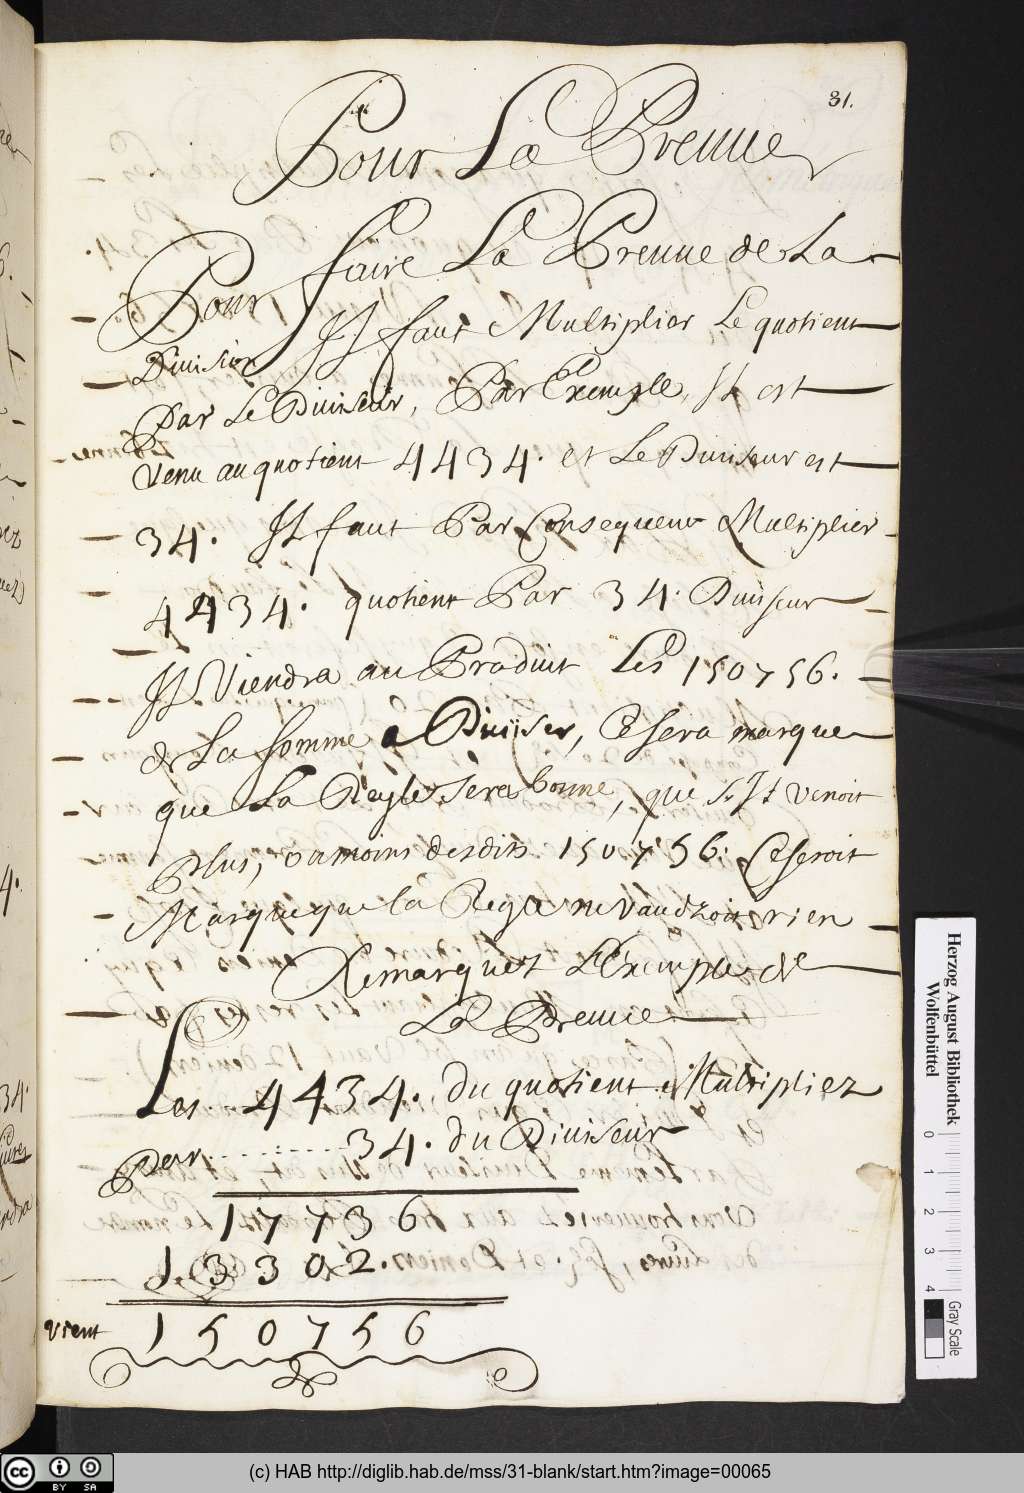 31.
Pour La Preuue
Pour faire La Preuue de La
Diuision Il faut Multiplier Le quotient
par Le Diuiseur, Par Exemple, Il est
Venu au quotient 4434. et Le Diuiseur est
34. Il faut Par Consequent Multiplier
4434. quotient Par 34. Diuiseur
Il Viendra au Produit Les 150756.
de La somme a Diuiser, Ce sera marque
que La Regle sera bonne, que sy Il venoit
Plus, ou moins desdits 150756. Ce seroit
Marque que la Regle ne Vaudroit rien
Remarquez L'Exemple de
La Preuue
Les 4434. du quotient Multipliez
Par .......... 34. du Diuiseur
17736
13302.
vient 150756
Herzog August Bibliothek
Wolfenbüttel
0 1 2 3 4
Gray Scale
cc BY SA
(c) HAB http://diglib.hab.de/mss/31-blank/start.htm?image=00065